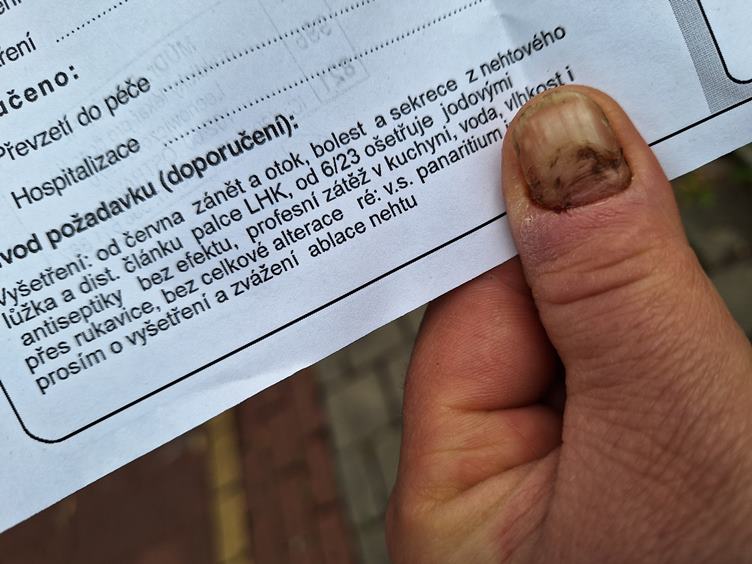 ření
učeno:
Převzetí do péče
Hospitalizace
vod požadavku (doporučení):
Vyšetření: od června zánět a otok, bolest a sekrece z nehtového
lůžka a dist. článku palce LHK, od 6/23 ošetřuje jodovými
antiseptiky bez efektu, profesní zátěž v kuchyni, voda, vlhkost i
přes rukavice, bez celkové alterace ré: v.s. panaritium
prosím o vyšetření a zvážení ablace nehtu